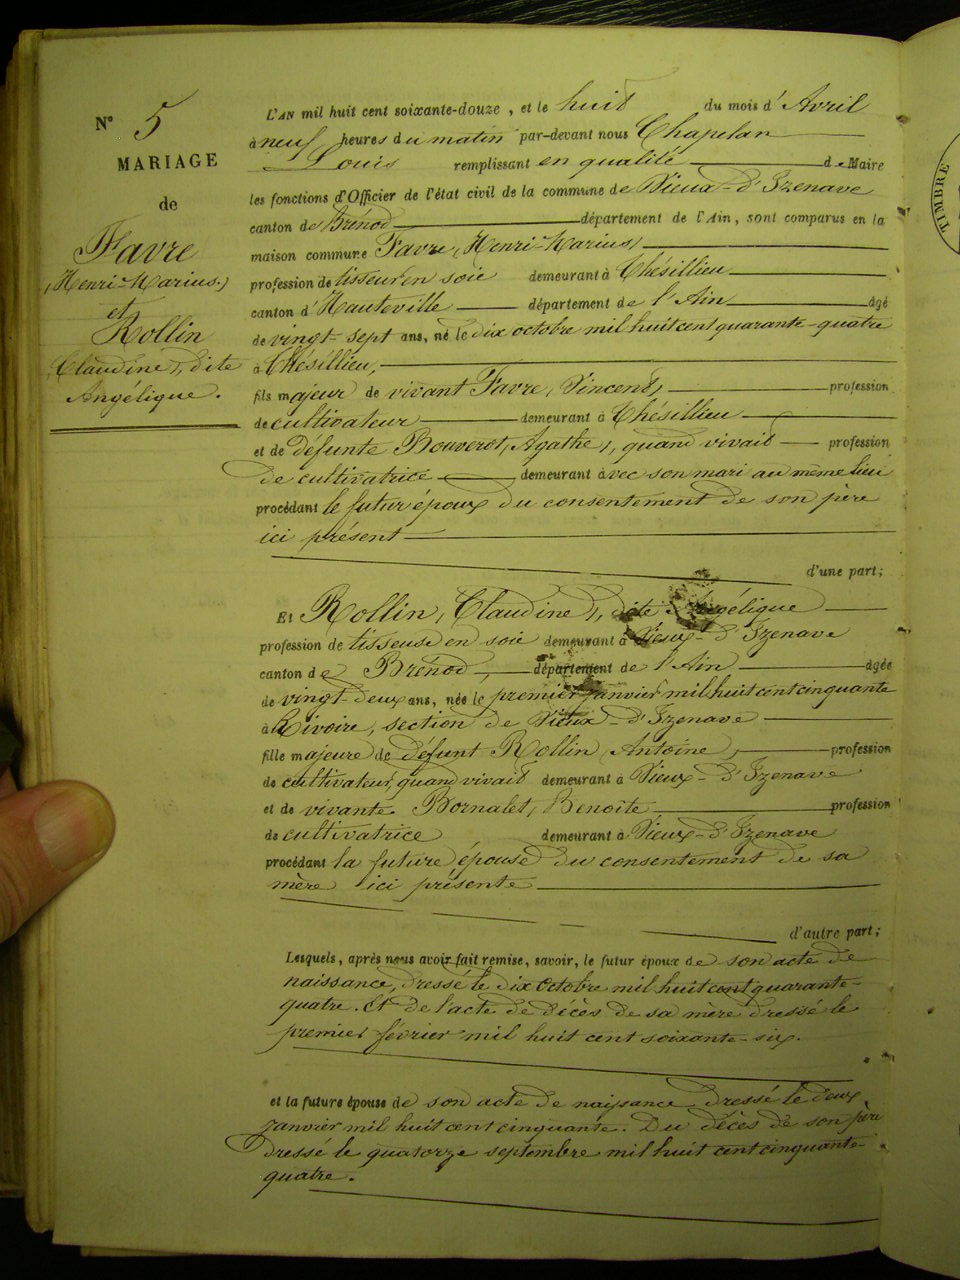 N° 5
MARIAGE
de
Favre
(Henri-Marius)
et
Rollin
(Claudine), dite
Angélique.
L'AN mil huit cent soixante-douze, et le huit du mois d'Avril
à neuf heures du matin par-devant nous Chapelan
Louis remplissant en qualité de Maire
les fonctions d'Officier de l'état civil de la commune de Vieux-d'Izenave
canton de Brénod département de l'Ain, sont comparus en la
maison commune Favre, (Henri-Marius)
profession de tisseur en soie demeurant à Thésillieu
canton d'Hauteville département de l'Ain âgé
de vingt-sept ans, né le dix octobre mil huit cent quarante-quatre
à Thésillieu,
fils majeur de vivant Favre, Vincent, profession
de cultivateur demeurant à Thésillieu
et de défunte Bouverot, (Agathe), quand vivait profession
de cultivatrice demeurant avec son mari au même lieu
procédant le futur époux du consentement de son père
ici présent
d'une part;
Et Rollin, (Claudine), dite Angélique
profession de tisseuse en soie demeurant à Vieux-d'Izenave
canton de Brénod, département de l'Ain âgée
de vingt-deux ans, née le premier janvier mil huit cent cinquante
à Rivoire, section de Vieux-d'Izenave
fille majeure de défunt Rollin (Antoine), profession
de cultivateur, quand vivait demeurant à Vieux-d'Izenave
et de vivante Bornalet, Benoîte profession
de cultivatrice demeurant à Vieux-d'Izenave
procédant la future épouse du consentement de sa
mère ici présente
d'autre part;
Lesquels, après nous avoir fait remise, savoir, le futur époux de son acte de
naissance, dressé le dix octobre mil huit cent quarante-
quatre. Et de l'acte de décès de sa mère dressé le
premier février mil huit cent soixante-six.
et la future épouse de son acte de naissance dressé le deux
janvier mil huit cent cinquante. Du décès de son père
dressé le quatorze septembre mil huit cent cinquante-
quatre.
TIMBRE